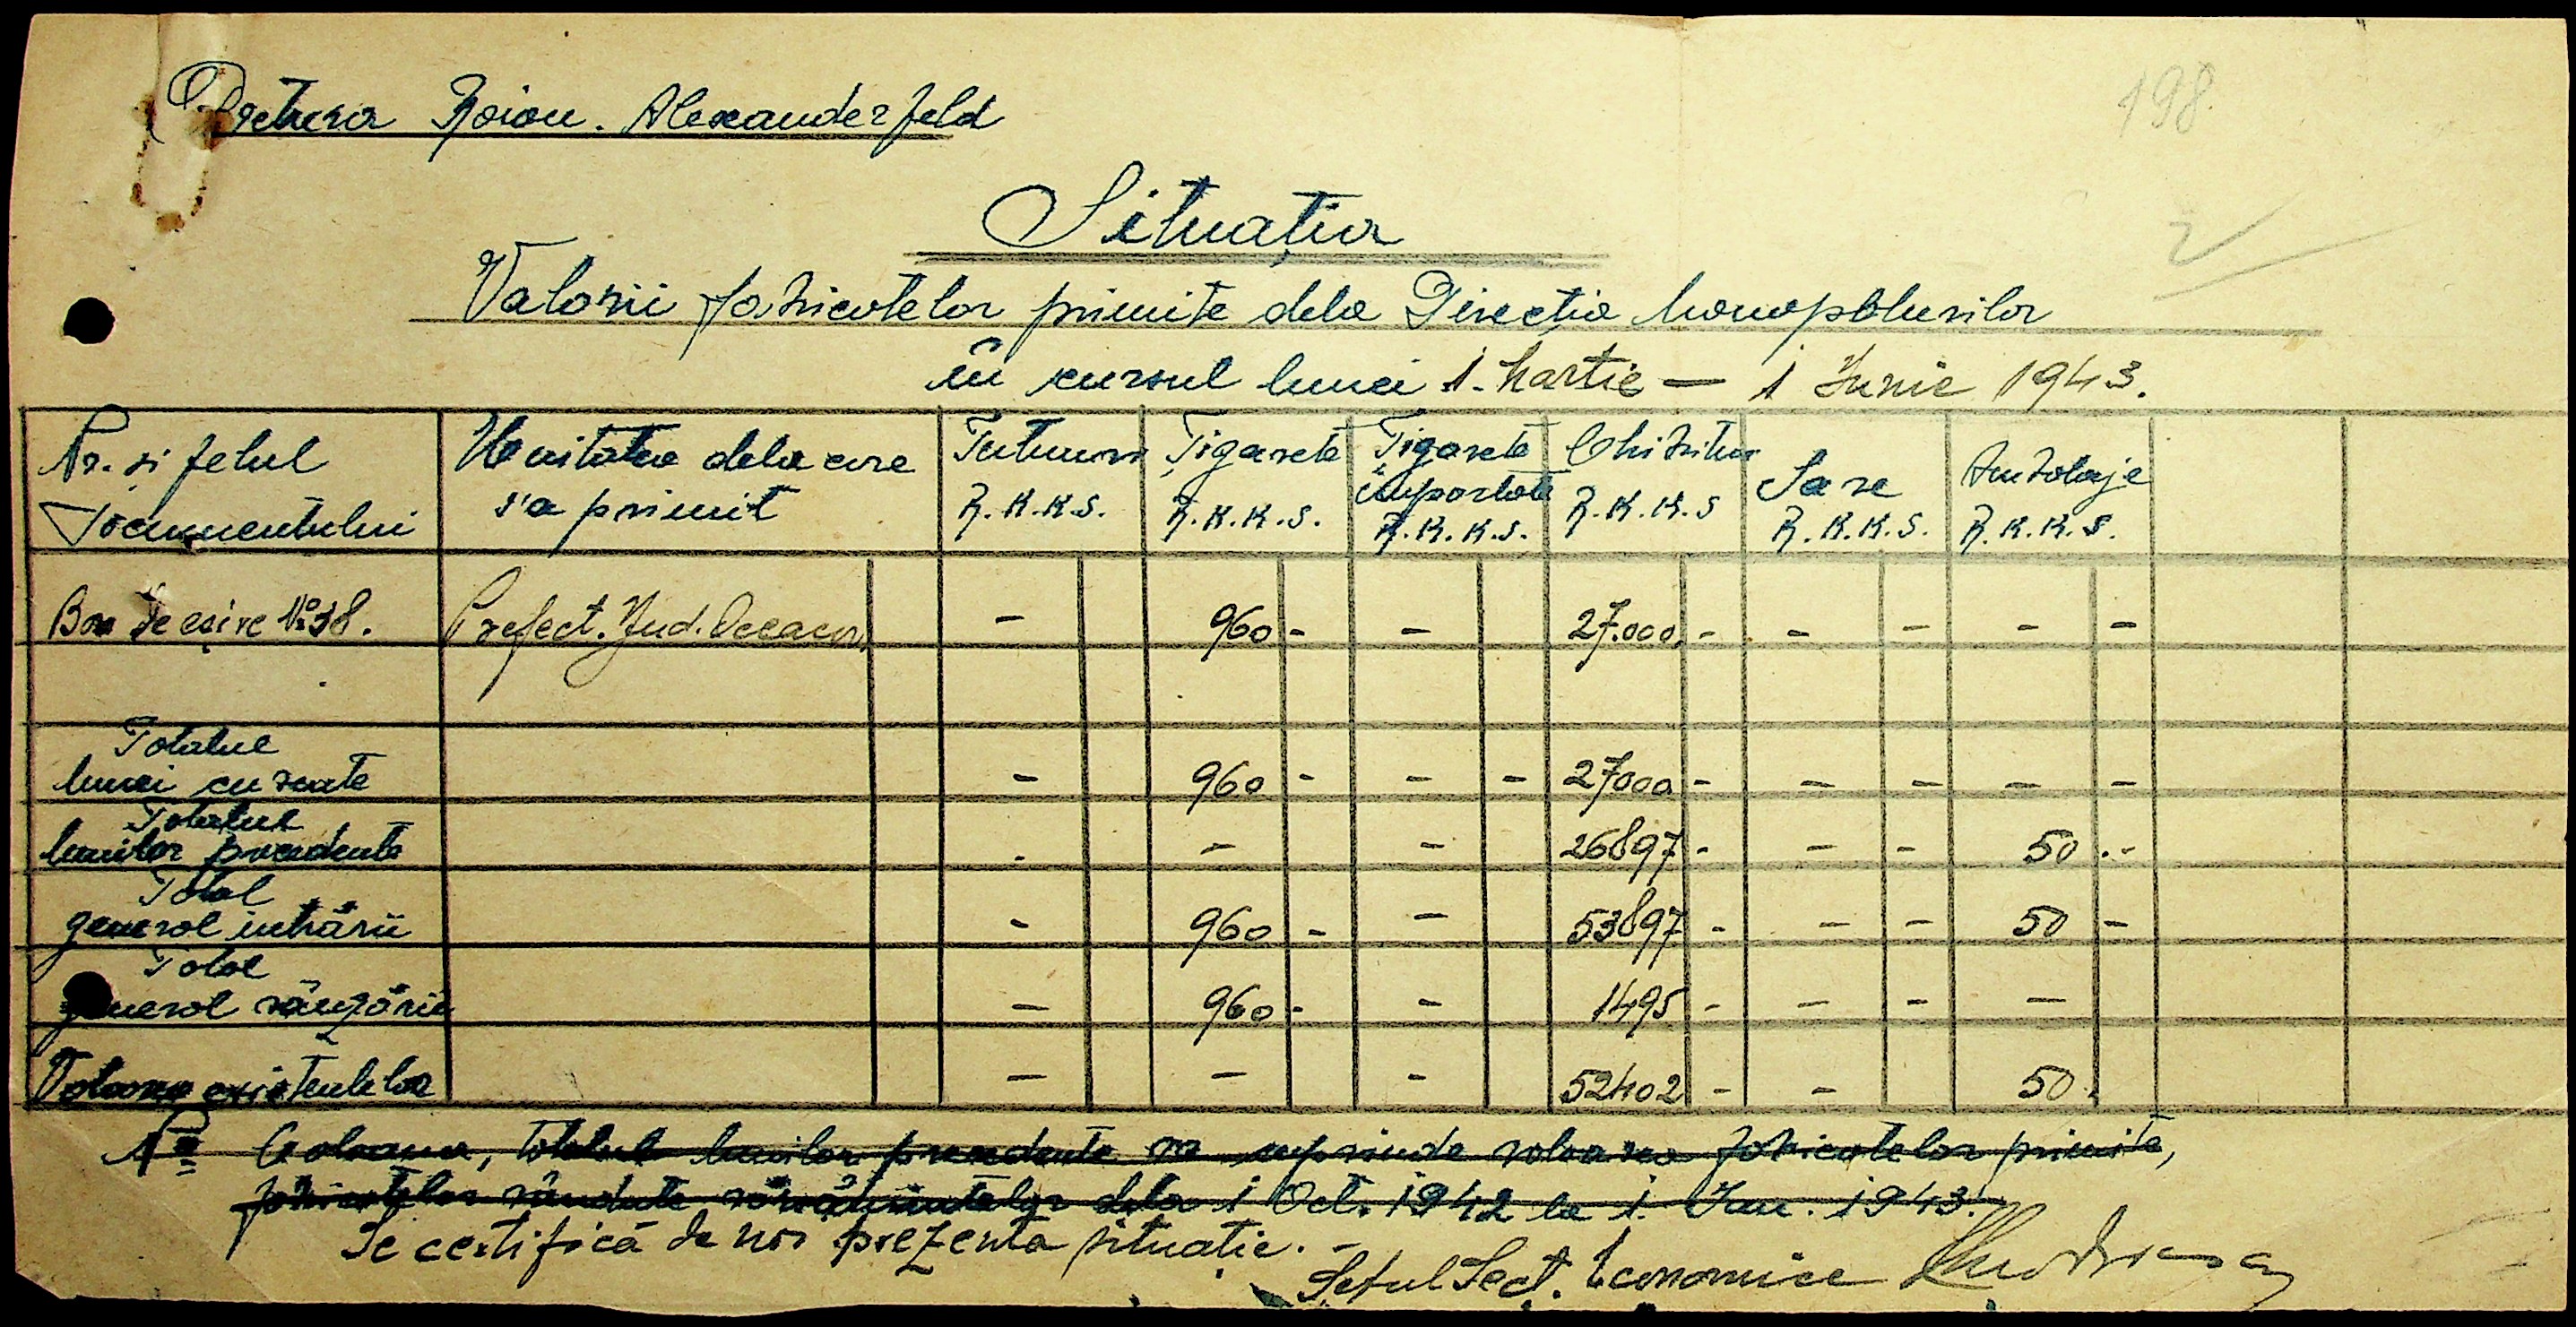 Pretura Raion. Alexanderfeld
198.
Situația
Valorii fabricatelor primite dela Direcția Monopolurilor
în cursul lunei 1. Martie — 1 Iunie 1943.
Nr. și felul Documentului | Unitatea dela care s'a primit | Tutunuri R.K.K.S. | Țigarete R.K.K.S. | Țigarete importate R.K.K.S. | Chibrituri R.K.K.S | Sare R.K.K.S. | Ambalaje R.K.K.S.
Bon de eșire No 38. | Prefect. Jud. Oceacov | - | 960 - | - | 27.000 - | - - | - -
Totalul lunei curente | - | 960 - | - - | 27000 - | - - | - -
Totalul lunilor precedente | - | - | - | 26897 - | - - | 50 .-
Total general intrării | - | 960 - | - | 53897 - | - - | 50 -
Total general vânzării | - | 960 - | - | 1495 - | - - | -
Valoarea existentelor | - | - | - | 52402 - | - | 50.
Coloana, totalul lunilor precedente va cuprinde valoarea fabricatelor primite,
fabricatelor vândute dela 1 Oct. 1942 la 1. Ian. 1943.
Se certifică de noi prezenta situație. -
Șeful Sect. Economice